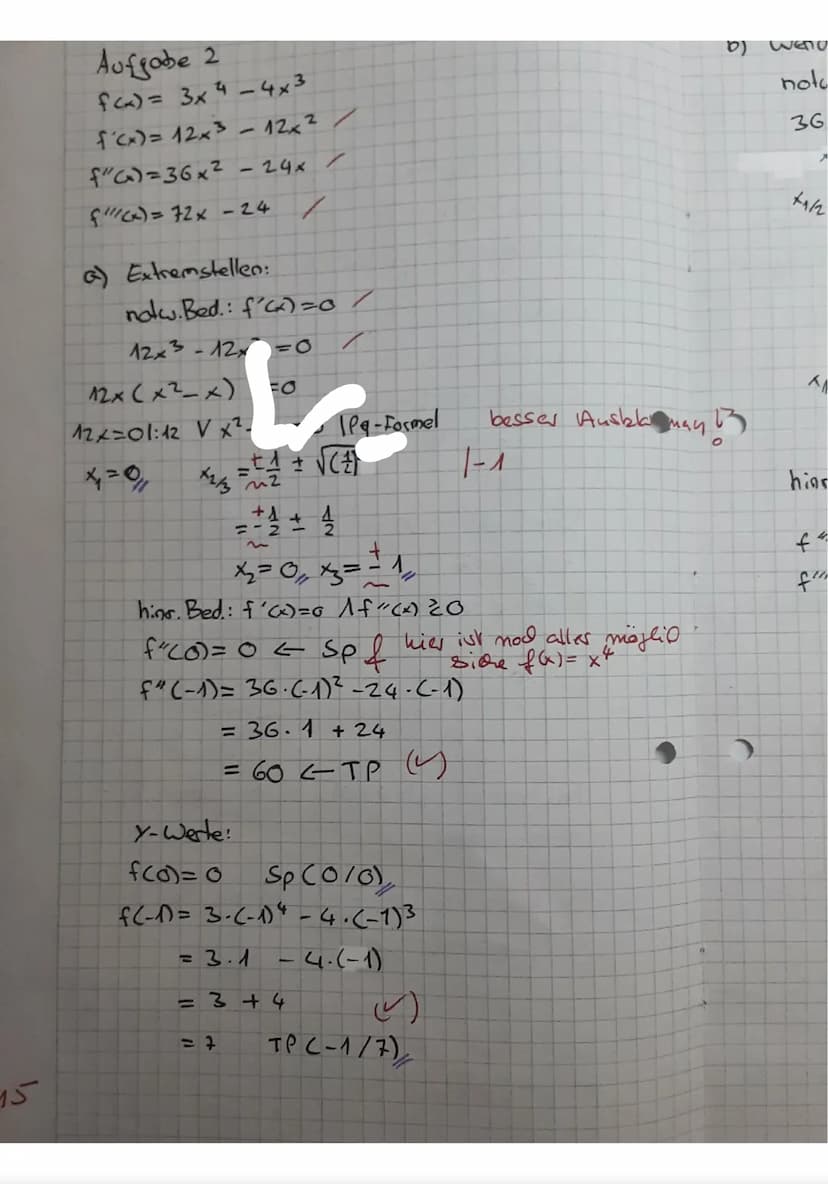 Aufgabe 2
f(x) = 3x⁴ - 4x³
f'(x) = 12x³ - 12x²
f''(x) = 36x² - 24x
f'''(x) = 72x - 24
a) Extremstellen:
notw. Bed.: f'(x) = 0
12x³ - 12x = 0
12x(x² - x) = 0
12x = 0 |:12 V x² - | Pq-Formel besser
x₁ = 0 x₂/₃ = +- 1/2 ± √(1/2) |-1
= +- 1/2 ± 1/2
x₂ = 0, x₃ = +- 1
hinr. Bed.: f'(x) = 0 ∧ f''(x) ≷ 0
f''(0) = 0 ← SP f hier ist noch alles möglich
siehe f(x) = x⁴
f''(-1) = 36·(-1)² - 24·(-1)
= 36·1 + 24
= 60 ← TP (✓)
Y-Werte:
f(0) = 0 SP(0/0)
f(-1) = 3·(-1)⁴ - 4·(-1)³
= 3·1 - 4·(-1)
= 3 + 4 (✓)
= 7 TP(-1/7)
15
b)
36
x₁/₂
x₁
f''
f'''